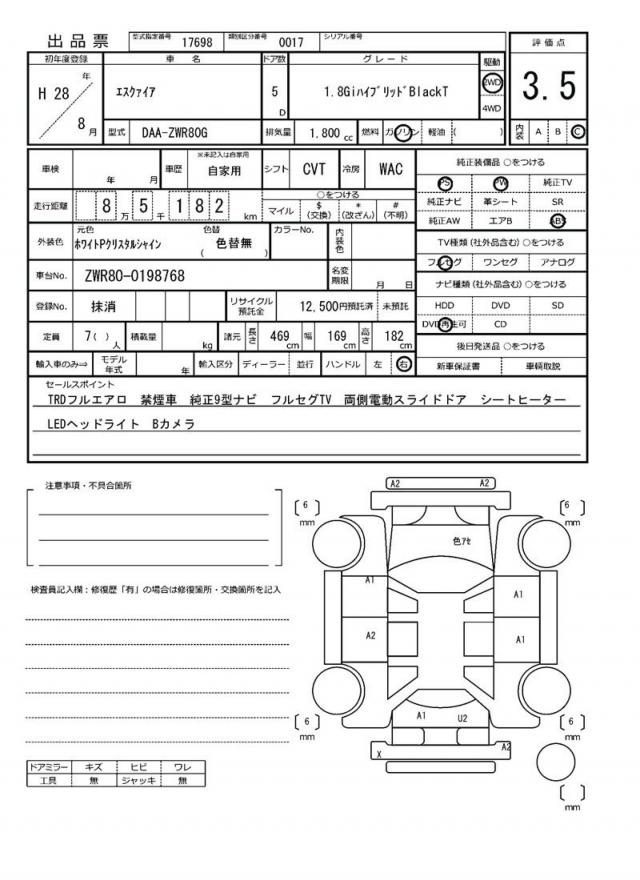 出品票
型式指定番号 17698 類別区分番号 0017 シリアル番号
初年度登録 車名 ドア数 グレード 駆動 評価点
H 28 年 8 月
エスクァイア 5 D 1.8GiハイブリッドblackT 2WD 4WD
3.5
型式 DAA-ZWR80G 排気量 1.800 cc 燃料 ガソリン 軽油 ( )
内装 A B C
車検 年 月 車歴 ※未記入は自家用 自家用 シフト CVT 冷房 WAC
純正装備品 ○をつける
PS PW 純正TV
純正ナビ 革シート SR
純正AW エアB ABS
走行距離 8 万 5 千 1 8 2 km
○をつける
マイル $ (交換) * (改ざん) # (不明)
外装色 元色 ホワイトPクリスタルシャイン 色替 ( 色替無 ) カラーNo. 内装色
TV種類 (社外品含む) ○をつける
フルセグ ワンセグ アナログ
車台No. ZWR80-0198768 名変期限 月 日
ナビ種類 (社外品含む) ○をつける
HDD DVD SD
DVD再生可 CD
登録No. 抹消 リサイクル預託金 12,500円預託済 未預託
定員 7( ) 人 積載量 kg 諸元 長さ 469 cm 幅 169 cm 高さ 182 cm
後日発送品 ○をつける
新車保証書 車輌取説
輸入車のみ⇒ モデル年式 年 輸入区分 ディーラー 並行 ハンドル 左 右
セールスポイント
TRDフルエアロ 禁煙車 純正9型ナビ フルセグTV 両側電動スライドドア シートヒーター
LEDヘッドライト Bカメラ
注意事項・不具合箇所
検査員記入欄：修復歴「有」の場合は修復箇所・交換箇所を記入
A2 A2
6 mm
6 mm
色アセ
A1
A1
A2
A1
A1 U2
6 mm
6 mm
X A2
mm
ドアミラー キズ ヒビ ワレ
工具 無 ジャッキ 無